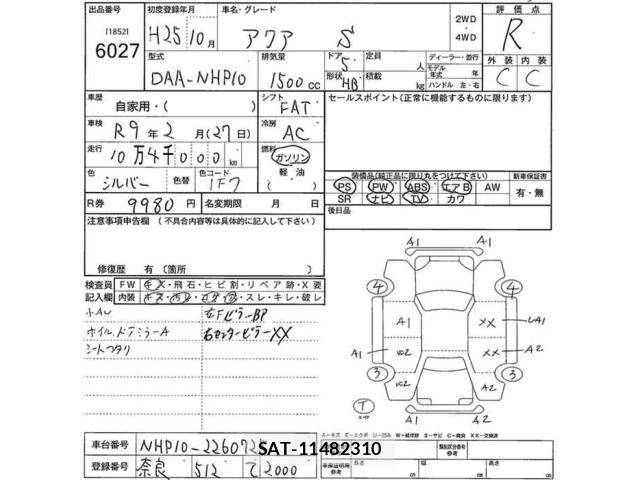 [1852] 初度登録年月 車名・グレード 2WD・4WD 評価点
6027 H25 10月 アクア S R
型式 排気量 ドア 定員 ディーラー・並行 外装 内装
DAA-NHP10 1500cc 5 人 モデル年式 年
形状 HB 積載 kg ハンドル 左・右 C C
車歴 自家用・( ) シフト FAT セールスポイント(正常に機能するものに限ります)
車検 R9年2月(27日) 冷房 AC
走行 10万4千000km 燃料 ガソリン
軽油
色 シルバー 色替 色コード 1F7 ( )
装備品(純正品に限り丸をつけて下さい) 新車保証書
PS PW ABS エアB AW 有・無
SR ナビ TV カワ
R券 9980円 名変期限 月 日 後日品
注意事項申告欄(不具合内容等は具体的に記入して下さい)
修復歴 有(箇所 )
検査員記入欄 FW キズ・飛石・ヒビ割・リペア跡・X要
内装 キズ・汚レ・コゲ・穴・スレ・キレ・破レ
小AU 右FピラーBP
ホイル、ドアミラーA 右センターピラーXX
シートヘタリ
A1 A1
4 4
A1 XX UA1
A1 XX A2
3 3
A2
T A2
車台番号 NHP10-226072
登録番号 奈良 512 て 2000
SAT-11482310